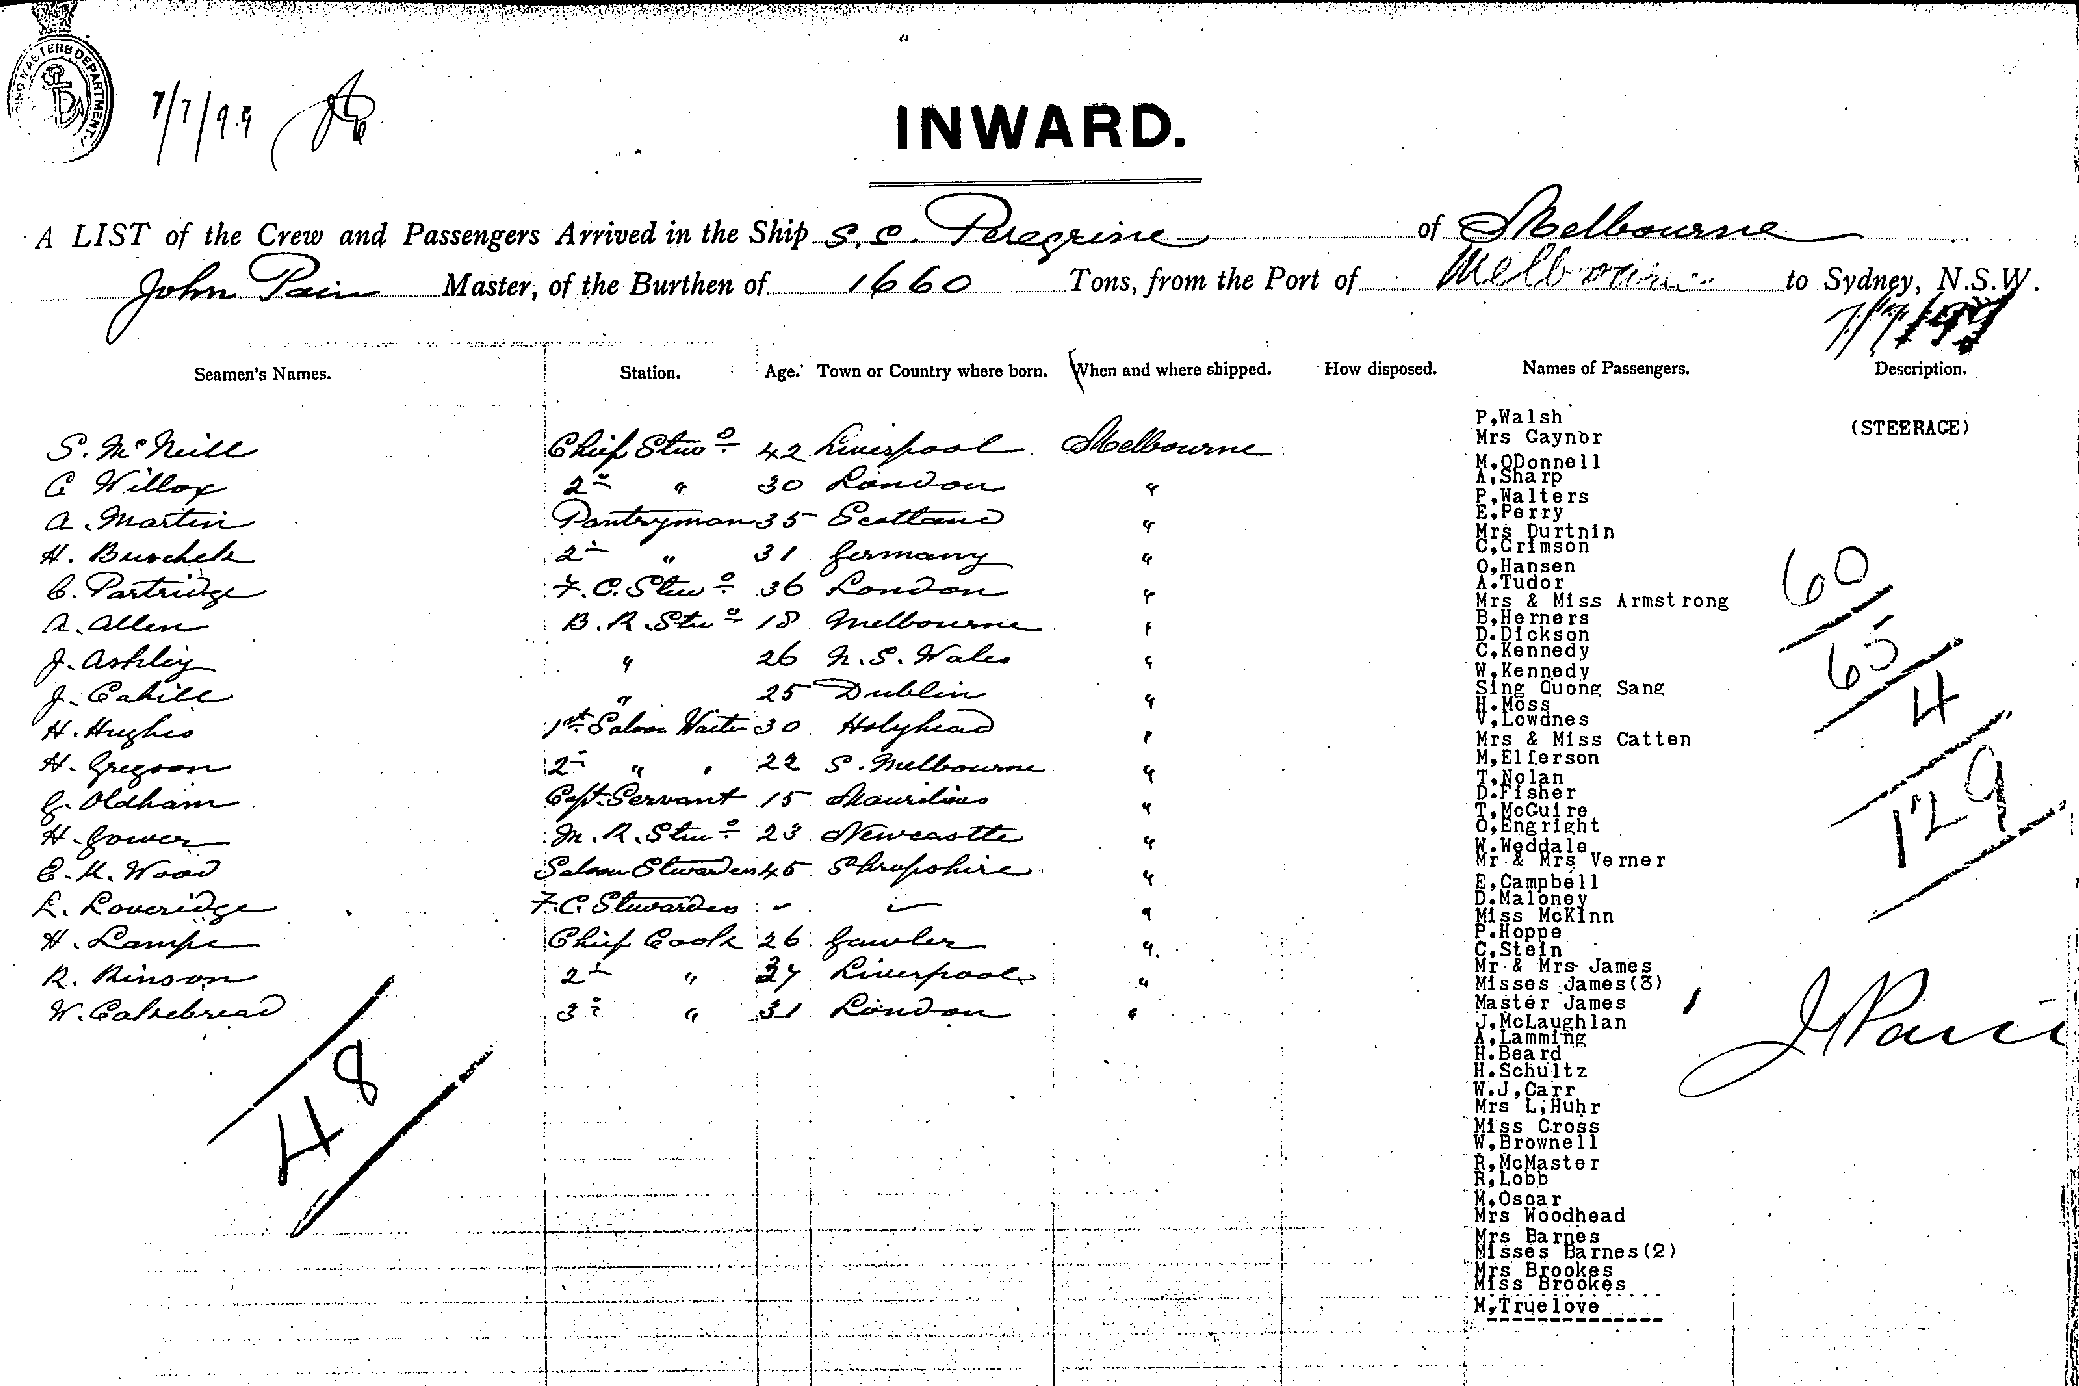 7/7/99
INWARD.
A LIST of the Crew and Passengers Arrived in the Ship S.S. Peregrine of Melbourne
John Pain Master, of the Burthen of 1660 Tons, from the Port of Melbourne to Sydney, N.S.W.
7/7/99
Seamen's Names. Station. Age. Town or Country where born. When and where shipped. How disposed. Names of Passengers. Description.
S. McNeill Chief Stwd 42 Liverpool Melbourne
C Willox 2nd " 30 London "
A. Martin Pantryman 35 Scotland "
H. 2nd " 31 Germany "
C. Partridge F.C. Stwd 36 London "
A. Allen B.R. Stwd 18 Melbourne "
J. Ashley " 26 N.S. Wales "
J. Cahill " 25 Dublin "
H. Hughes 1st Saloon Waiter 30 Holyhead "
H. Gregson 2nd " " 22 S. Melbourne "
G. Oldham Capt. Servant 15 Mauritius "
H. Gower M.R. Stwd 23 Newcastle "
E. K. Wood Saloon Stwardess 45 Shropshire "
L. Loveridge F.C. Stwardess - - "
H. Lampe Chief Cook 26 Gawler "
R. Rinson 2nd " 37 Liverpool "
W. Cakebread 3rd " 31 London "
48
(STEERAGE)
P,Walsh
Mrs Gaynor
M.ODonnell
A,Sharp
P,Walters
E,Perry
Mrs Durtnin
C,Crimson
O,Hansen
A.Tudor
Mrs & Miss Armstrong
B,Herners
D.Dickson
C,Kennedy
W,Kennedy
Sing Quong Sang
H.Moss
V,Lowdnes
Mrs & Miss Catten
M,Ellerson
T,Nolan
D.Fisher
T,McGuire
O,Engright
W.Weddale
Mr & Mrs Verner
E,Campbell
D.Maloney
Miss McKinn
P.Hoppe
C,Stein
Mr & Mrs James
Misses James(3)
Master James
J.McLaughlan
A,Lamming
H.Beard
H.Schultz
W.J,Carr
Mrs L,Huhr
Miss Cross
W,Brownell
R,McMaster
R,Lobb
M,Oscar
Mrs Woodhead
Mrs Barnes
Misses Barnes(2)
Mrs Brookes
Miss Brookes
M,Truelove
60
65
4
129
J Pain